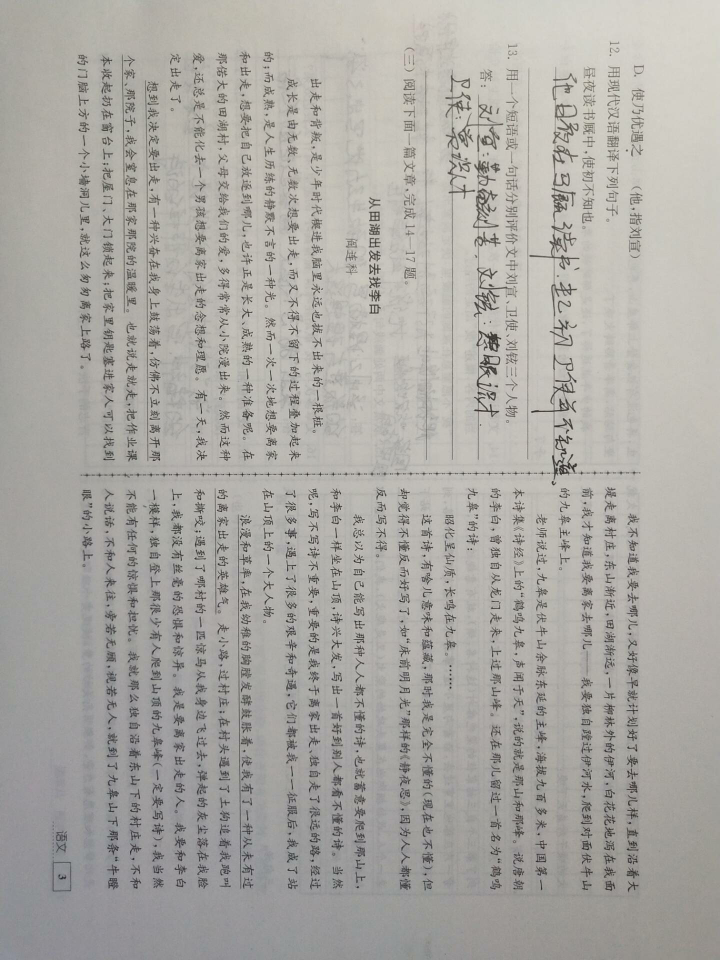 D. 使乃优遇之 (他,指刘宣)
12. 用现代汉语翻译下列句子。
昼夜读书厩中,使初不知也。
他日夜在马厩读书,起初卫使并不知道。
13. 用一个短语或一句话分别评价文中刘宣、卫使、刘铉三个人物。
答:刘宣:勤奋刻苦. 刘铉:慧眼识才.
卫使:赏识才
(三) 阅读下面一篇文章,完成14—17题。
从田湖出发去找李白
阎连科
出走和背叛,是少年时代楔进我脑里永远也拔不出来的一根桩。
成长是由无数、无数次想要出走,而又不得不留下的过程叠加起来
的;而成熟,是人生历练的静默不言的一种光。然而一次一次地想要离家
和出走,想要把自己放逐到哪儿,也许正是长大、成熟的一种准备呢。在
那偌大的田湖村,父母交给我们的爱,多得常常从小院漫出来。然而这种
爱,还总是不能化去一个男孩想要离家出走的念想和理愿。有一天,我决
定出走了。
想到我决定要出走,有一种兴奋在我身上鼓荡着,仿佛不立刻离开那
个家、那院子,我会窒息在那家那院的温暖里。也就说走就走,把作业课
本收起扔在窗台上;把屋门、大门锁起来;把家里钥匙塞进家人可以找到
的门脑上方的一个小墙洞儿里,就这么匆匆离家上路了。
我不知道我要去哪儿,又好像早就计划好了要去哪儿样,直到沿着大
堤走离村庄,东山渐近,田湖渐远,一片柳林外的伊河,白花花地泻在我面
前,我才知道我要离家去哪儿——我要独自蹚过伊河水,爬到对面伏牛山
的九皋主峰上。
老师说过,九皋是伏牛山余脉东延的主峰,海拔九百多米,中国第一
本诗集《诗经》上的“鹤鸣九皋,声闻于天”,说的就是那山和那峰。说唐朝
的李白,曾独自从龙门走来,上过那山峰。还在那儿留过一首名为“鹤鸣
九皋”的诗:
昭化呈仙质,长鸣在九皋。……
这首诗,有啥儿意味和蕴藏,那时我是完全不懂的(现在也不懂),但
却觉得不懂反而好写了,如“床前明月光”那样的《静夜思》,因为人人都懂
反而写不得。
我总以为自己能写出那种人人都不懂的诗,也就蓄意要爬到那山上,
和李白一样坐在山顶,诗兴大发,写出一首好到别人都看不懂的诗。当然
呢,写不写诗不重要,重要的是我终于离家出走、独自走了很远的路,经过
了很多事,遇上了很多的艰辛和奇遇,它们都被我一一征服后,我成了站
在山顶上的一个大人物。
浪漫和革命,在我幼稚的胸膛发酵鼓胀着,使我有了一种从未有过
的离家出走的英雄气。走小路,过村庄;在村头遇到了土狗追着我跑叫
和撕咬;遇到了哪村的一匹惊马从我身边飞过去,弹起的灰尘落在我脸
上,我都没有丝毫的恐惧和惊异。我是要离家出走的人。我要和李白
一模样,独自登上那很少有人爬到山顶的九皋峰(一定要写诗),我当然
不能有任何的惊惧和担忧。我就那么独自沿着东山下的村庄走,不和
人说话,不和人来往,旁若无顾,视若无人,就到了九皋山下那条“牛瞪
眼”的小路上。
语文 3